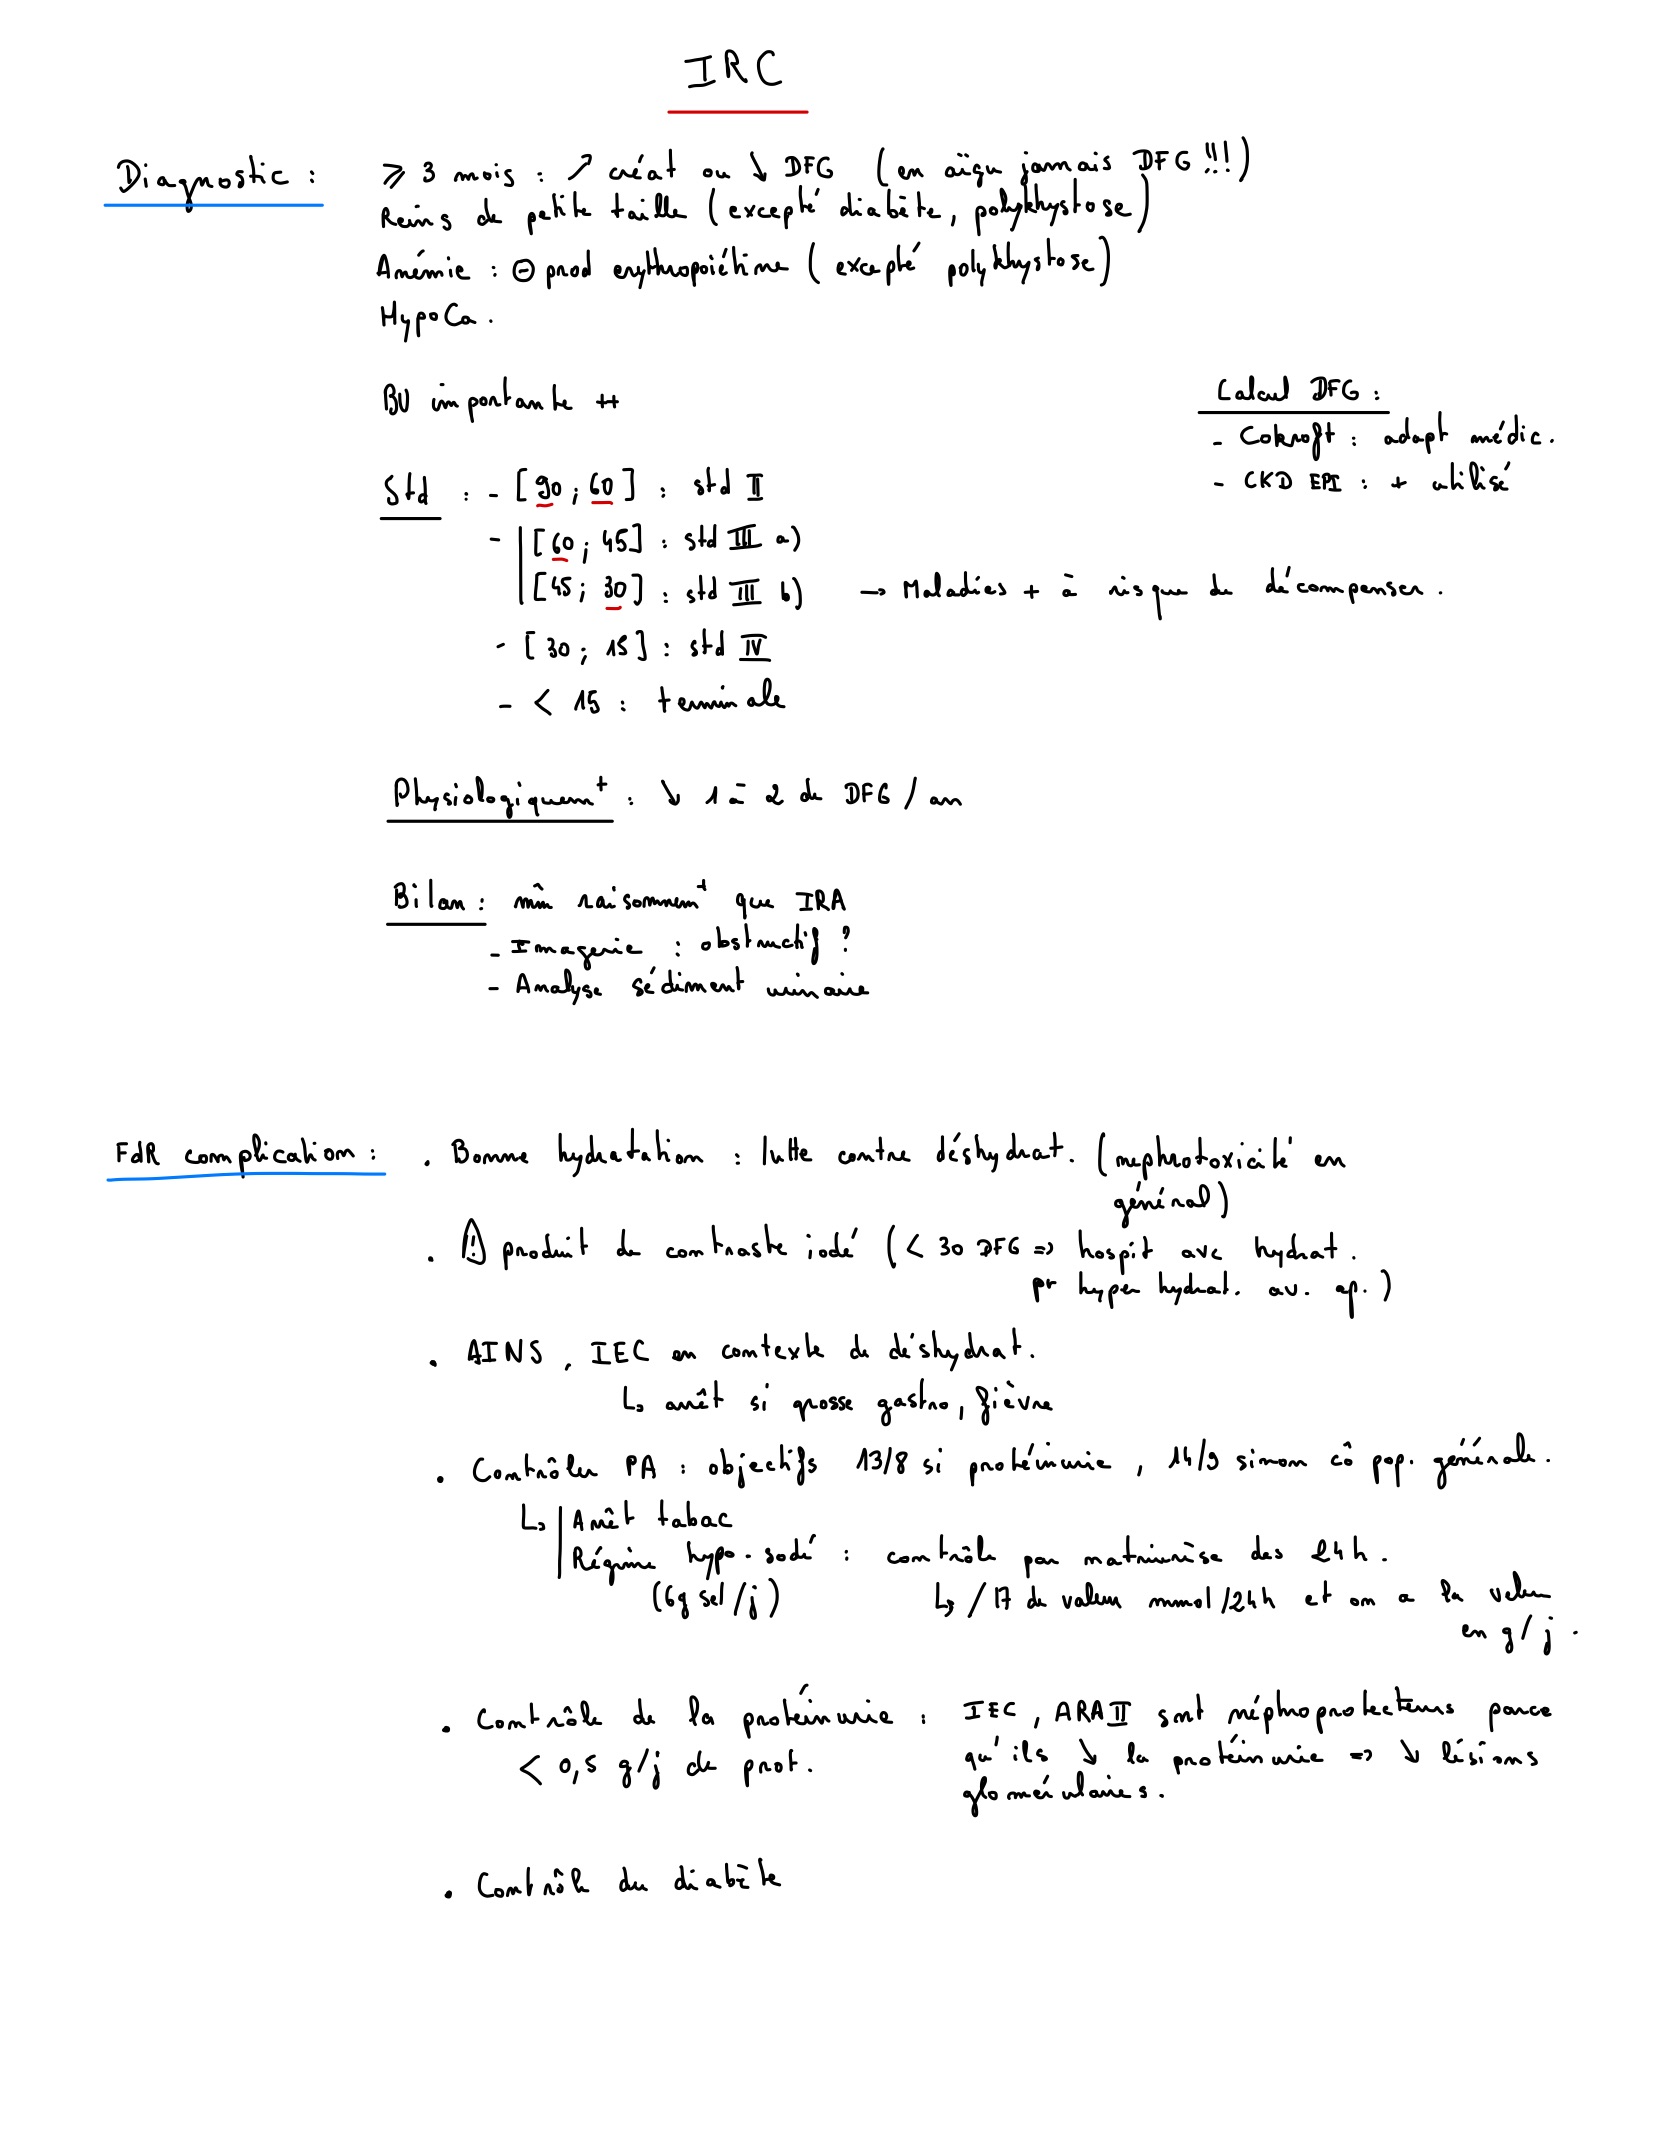 IRC
Diagnostic : ⩾ 3 mois : ↗ créat ou ↘ DFG (en aïgu jamais DFG !!!)
Reins de petite taille (excepté diabète, polykhystose)
Anémie : ⊖ prod erythropoiétine (excepté polykhystose)
HypoCa.
BU importante ++
Calcul DFG :
- Cokroft : adapt médic.
- CKD EPI : + utilisé
Std : - [90 ; 60] : std II
- [60 ; 45] : std III a)
[45 ; 30] : std III b) → Maladies + à risque de décompenser.
- [30 ; 15] : std IV
- < 15 : terminale
Physiologiquemt : ↘ 1 à 2 de DFG / an
Bilan : mm̂ raisonnemt que IRA
- Imagerie : obstructif ?
- Analyse sédiment urinaire
FdR complication : . Bonne hydratation : lutte contre déshydrat. (nephrotoxicité en
général)
. ⚠ produit de contraste iodé (< 30 DFG => hospit avc hydrat.
pr hyper hydrat. av. ap.)
. AINS, IEC en contexte de déshydrat.
↳ arrêt si grosse gastro, fièvre
. Contrôler PA : objectifs 13/8 si protéinurie, 14/9 sinon cô pop. générale.
↳ Arrêt tabac
Régime hypo-sodé : contrôle par natriurèse des 24h.
(6g sel/j) ↳ /17 de valeur mmol/24h et on a la valeur
en g/j.
. Contrôle de la protéinurie : IEC, ARAII sont néphroprotecteurs parce
< 0,5 g/j de prot. qu'ils ↘ la protéinurie => ↘ lésions
glomérulaires.
. Contrôle du diabète